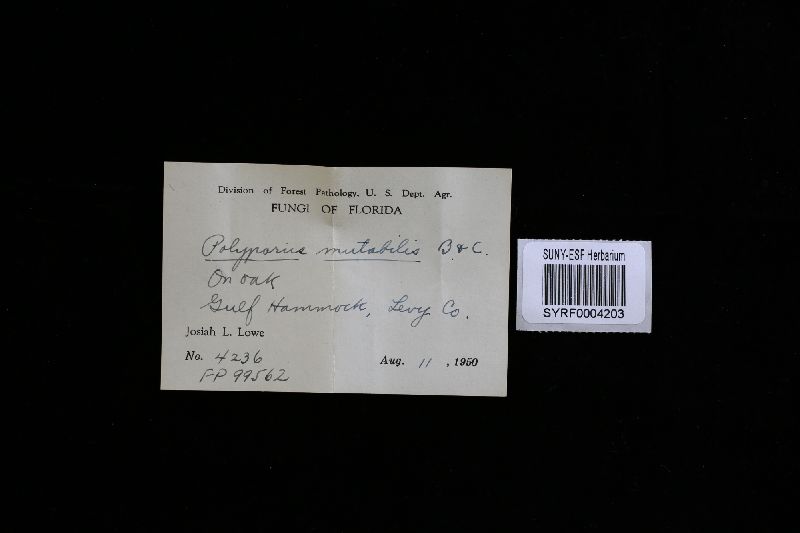 Division of Forest Pathology, U. S. Dept. Agr.
FUNGI OF FLORIDA
Polyporus mutabilis B. & C.
On oak
Gulf Hammock, Levy Co.
Josiah L. Lowe
No. 4236
Aug. 11, 1950
FP 99562
SUNY-ESF Herbarium
SYRF0004203